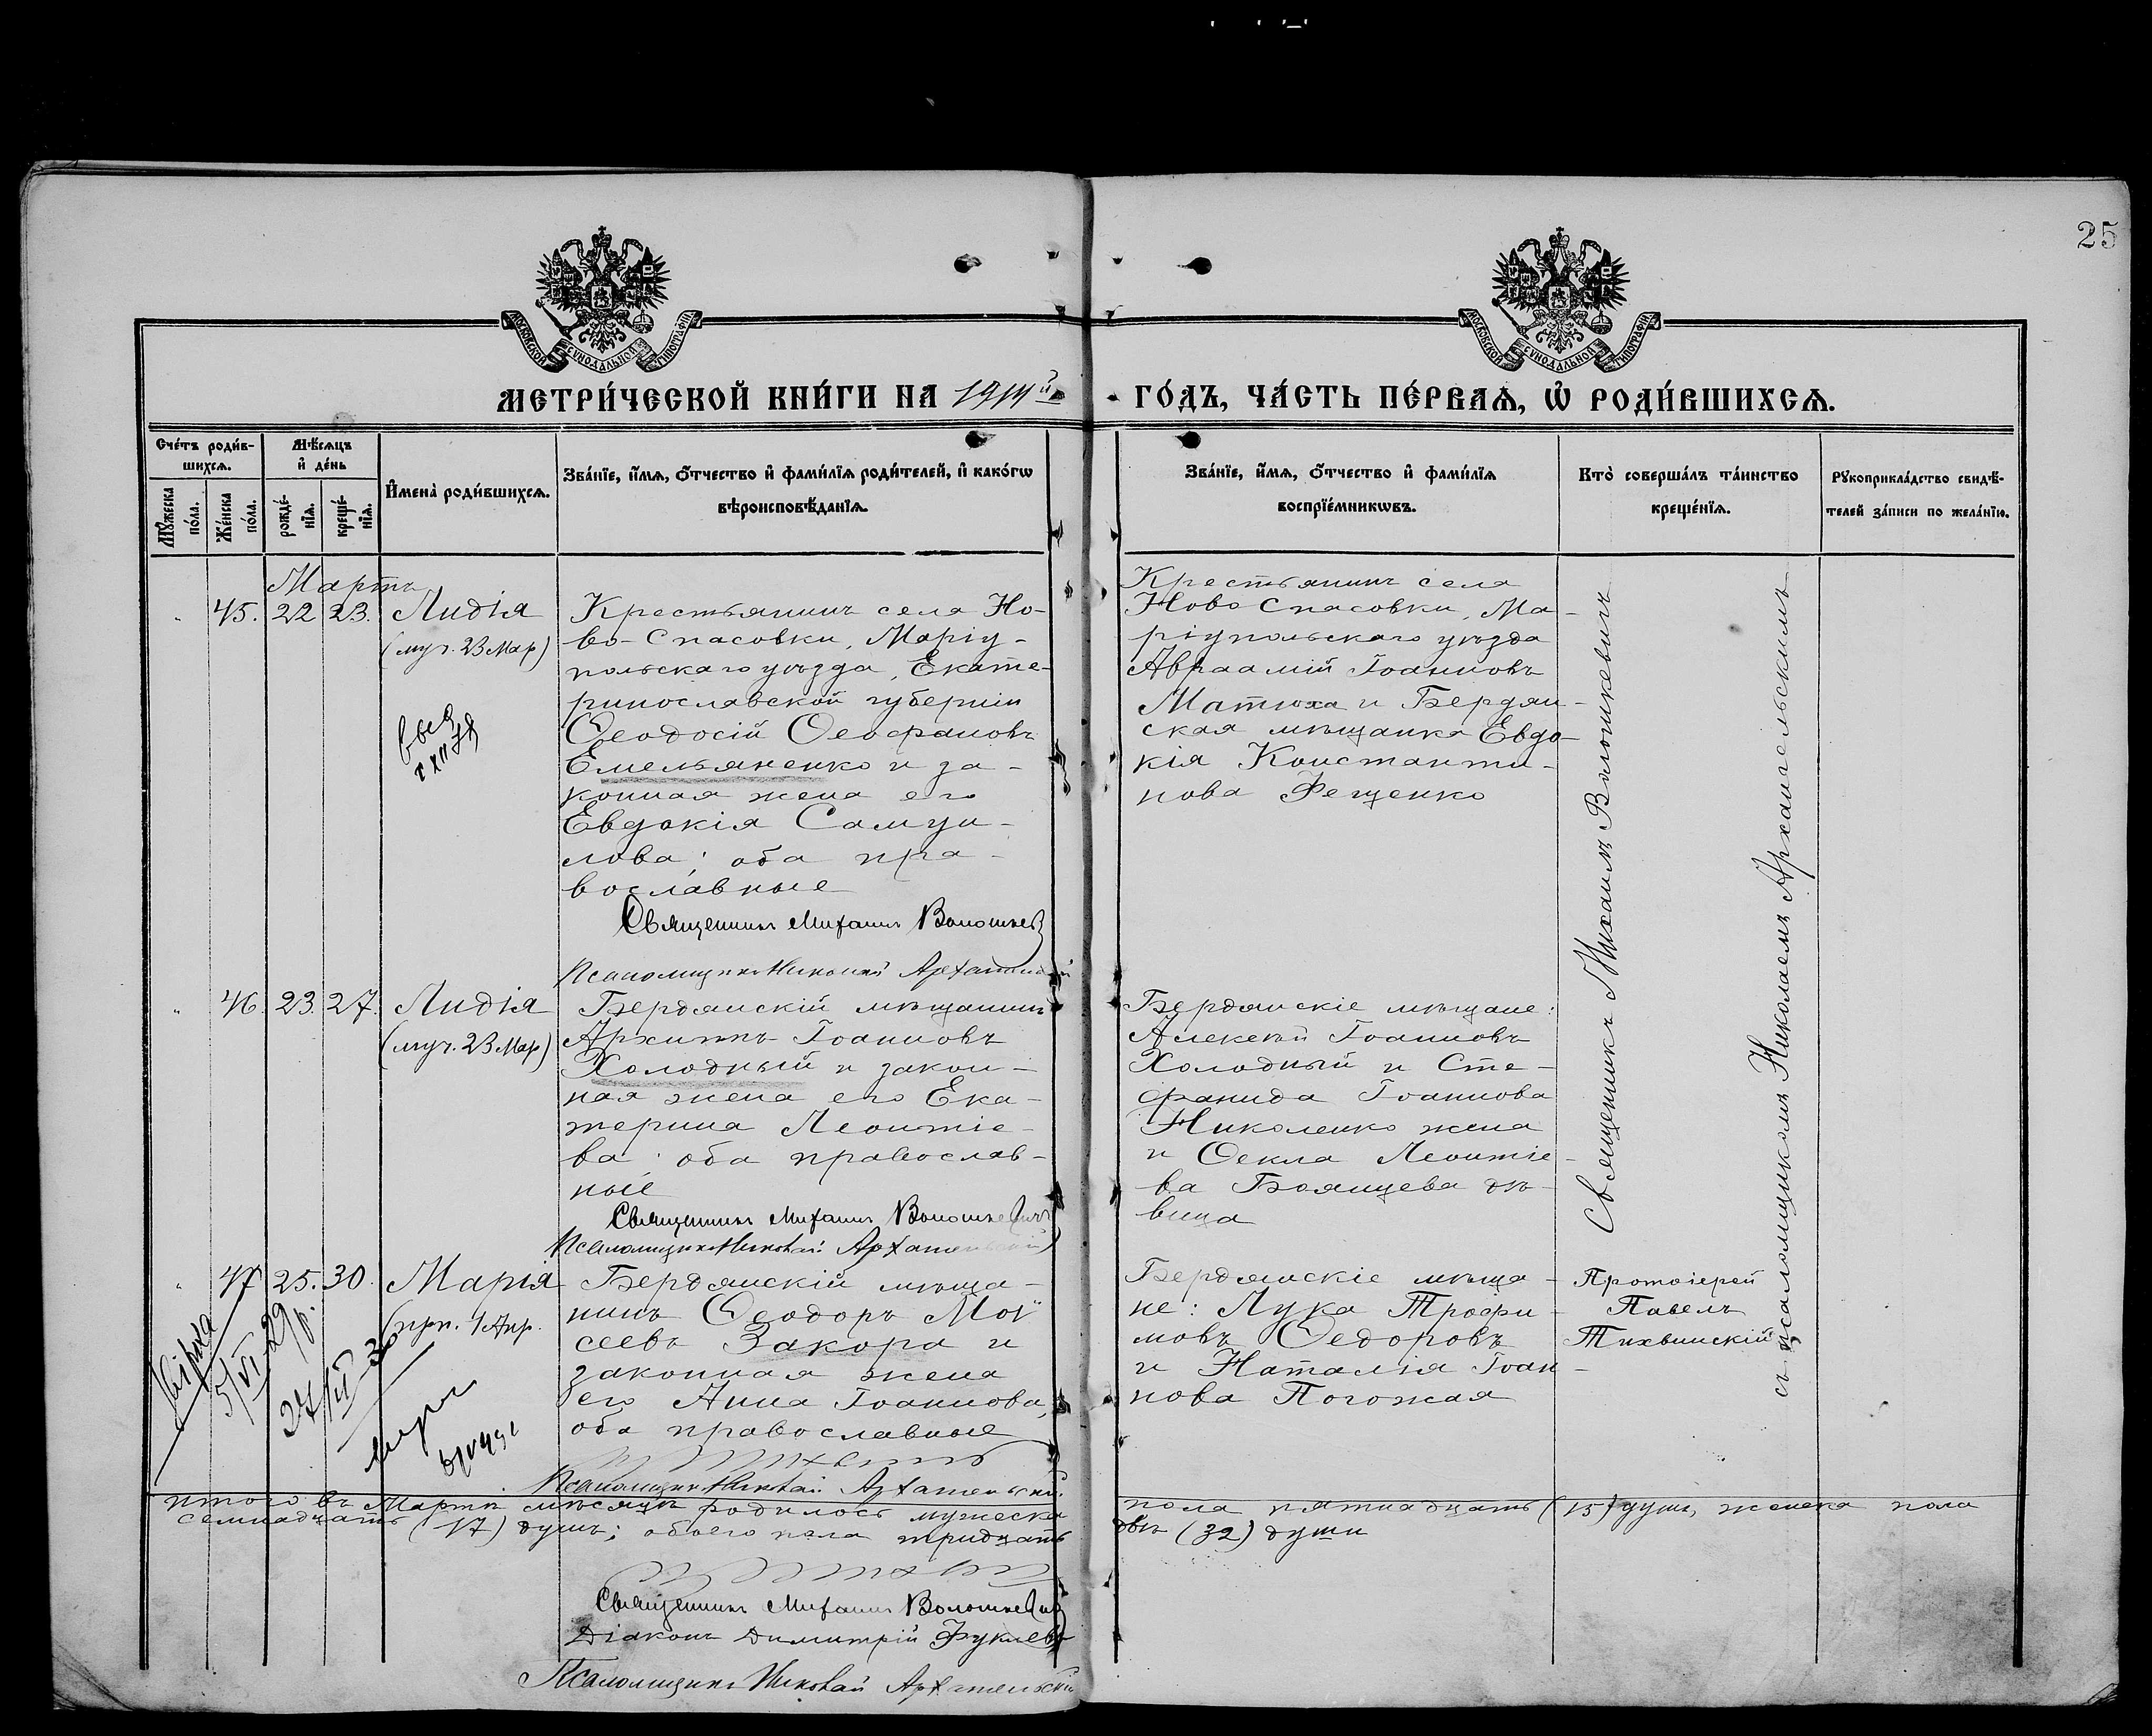 25
МОСКОВСКОЙ СѴНОДАЛЬНОЙ ТИПОГРАФІИ
МОСКОВСКОЙ СѴНОДАЛЬНОЙ ТИПОГРАФІИ
МЕТРИ́ЧЕСКОЙ КНИ́ГИ НА 1914й
ГО́ДЪ, ЧА́СТЬ ПЕ́РВАѦ, Ѡ҆ РОДИ́ВШИХСѦ.
Сче́тъ роди́в-
шихсѧ.
Мꙋ́жеска по́ла.
Же́нска по́ла.
Мѣ́сѧцъ
и҆ де́нь
рожде́-нїѧ.
креще́-нїѧ.
И҆мена̀ роди́вшихсѧ.
Зва́нїе, и҆́мѧ, ѻ҆́тчество и҆ фами́лїѧ роди́телей, и҆ како́гѡ
вѣроисповѣ́данїѧ.
Зва́нїе, и҆́мѧ, ѻ҆́тчество и҆ фами́лїѧ
воспрїе́мникѡвъ.
Кто̀ соверша́лъ та́инство
креще́нїѧ.
Рꙋкоприкла́дство свидѣ́-
телей за́писи по жела́нїю.
Мартъ
45. 22 23. Лидія
(муч. 23 Мар)
Крестьянинъ села Но-
во-Спасовки, Маріу-
польскаго уѣзда, Екате-
ринославской губерніи
Ѳеодосій Ѳеофановъ
Емельяненко и за-
конная жена его
Евдокія Самуи-
лова; оба пра-
вославные
Священникъ Михаилъ Волошкев
Псаломщикъ Николай Архангельскій
Крестьянинъ села
Ново Спасовки, Ма-
ріупольскаго уѣзда
Авраамій Іоанновъ
Матюха и Бердян-
ская мѣщанка Евдо-
кія Константи-
нова Фещенко
46. 23. 27. Лидія
(муч. 23 Мар)
Бердянскій мѣщанинъ
Архиппъ Іоанновъ
Холодный и закон-
ная жена его Ека-
терина Леонтіе-
ва; оба православ-
ные
Священникъ Михаилъ Волошкевичъ
Псаломщикъ Николай Архангельскій
Бердянскіе мѣщане:
Алексѣй Іоанновъ
Холодный и Сте-
фанида Іоаннова
Николенко жена
и Ѳекла Леонтіе-
ва Боянцева дѣ-
вица
Священникъ Михаилъ Волошкевичъ
съ псаломщикомъ Николаемъ Архангельскимъ
47 25. 30. Марія
(прп. 1 Апр.
Бердянскій мѣща-
нинъ Ѳеодоръ Мои
сеевъ Закора и
законная жена
его Анна Іоаннова,
оба православные
Псаломщикъ Николай Архангельскій
Бердянскіе мѣща-
не: Лука Трофи-
мовъ Ѳедоровъ
и Наталія Іоан-
нова Погожая
Протоіерей
Павелъ
Тихвинскій
5/VI-29
Итого въ Мартѣ мѣсяцѣ родилось мужеска пола пятнадцать (15) душъ, женска пола
семнадцать (17) душъ; обоего пола тридцать двѣ (32) души
Священникъ Михаилъ Волошкевич
Діаконъ Димитрій
Псаломщикъ Николай Архангельскій